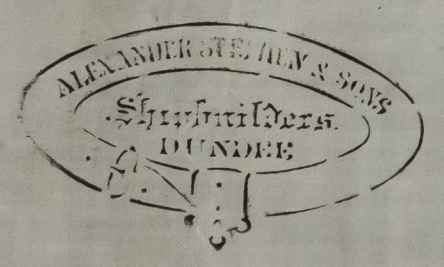 ALEXANDER STEPHEN & SONS
Shipbuilders.
DUNDEE